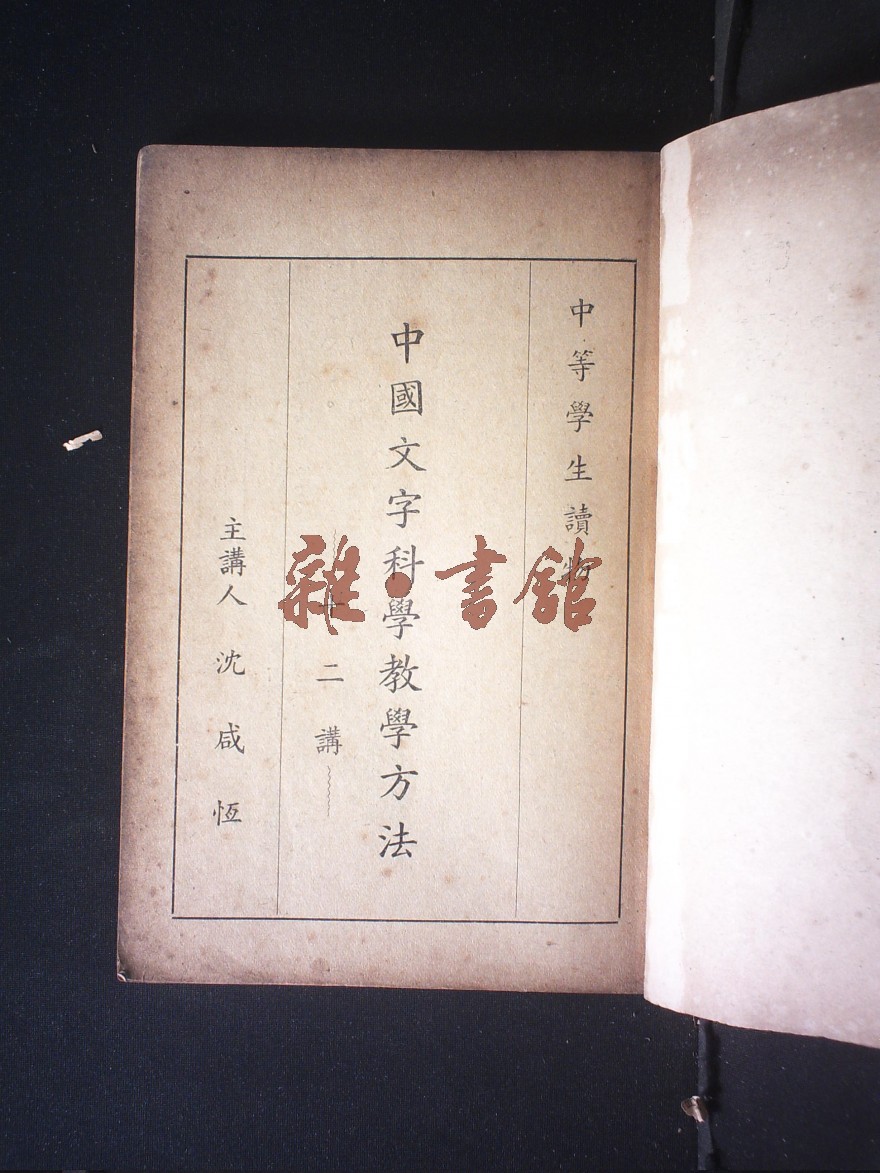 中等學生讀物
中國文字科學教學方法
十二講
主講人 沈咸恆
雜·書館